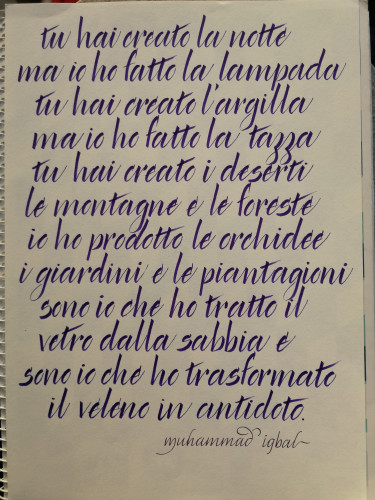 tu hai creato la notte
ma io ho fatto la lampada
tu hai creato l'argilla
ma io ho fatto la tazza
tu hai creato i deserti
le montagne e le foreste
io ho prodotto le orchidee
i giardini e le piantagioni
sono io che ho tratto il
vetro dalla sabbia e
sono io che ho trasformato
il veleno in antidoto.
muhammad iqbal